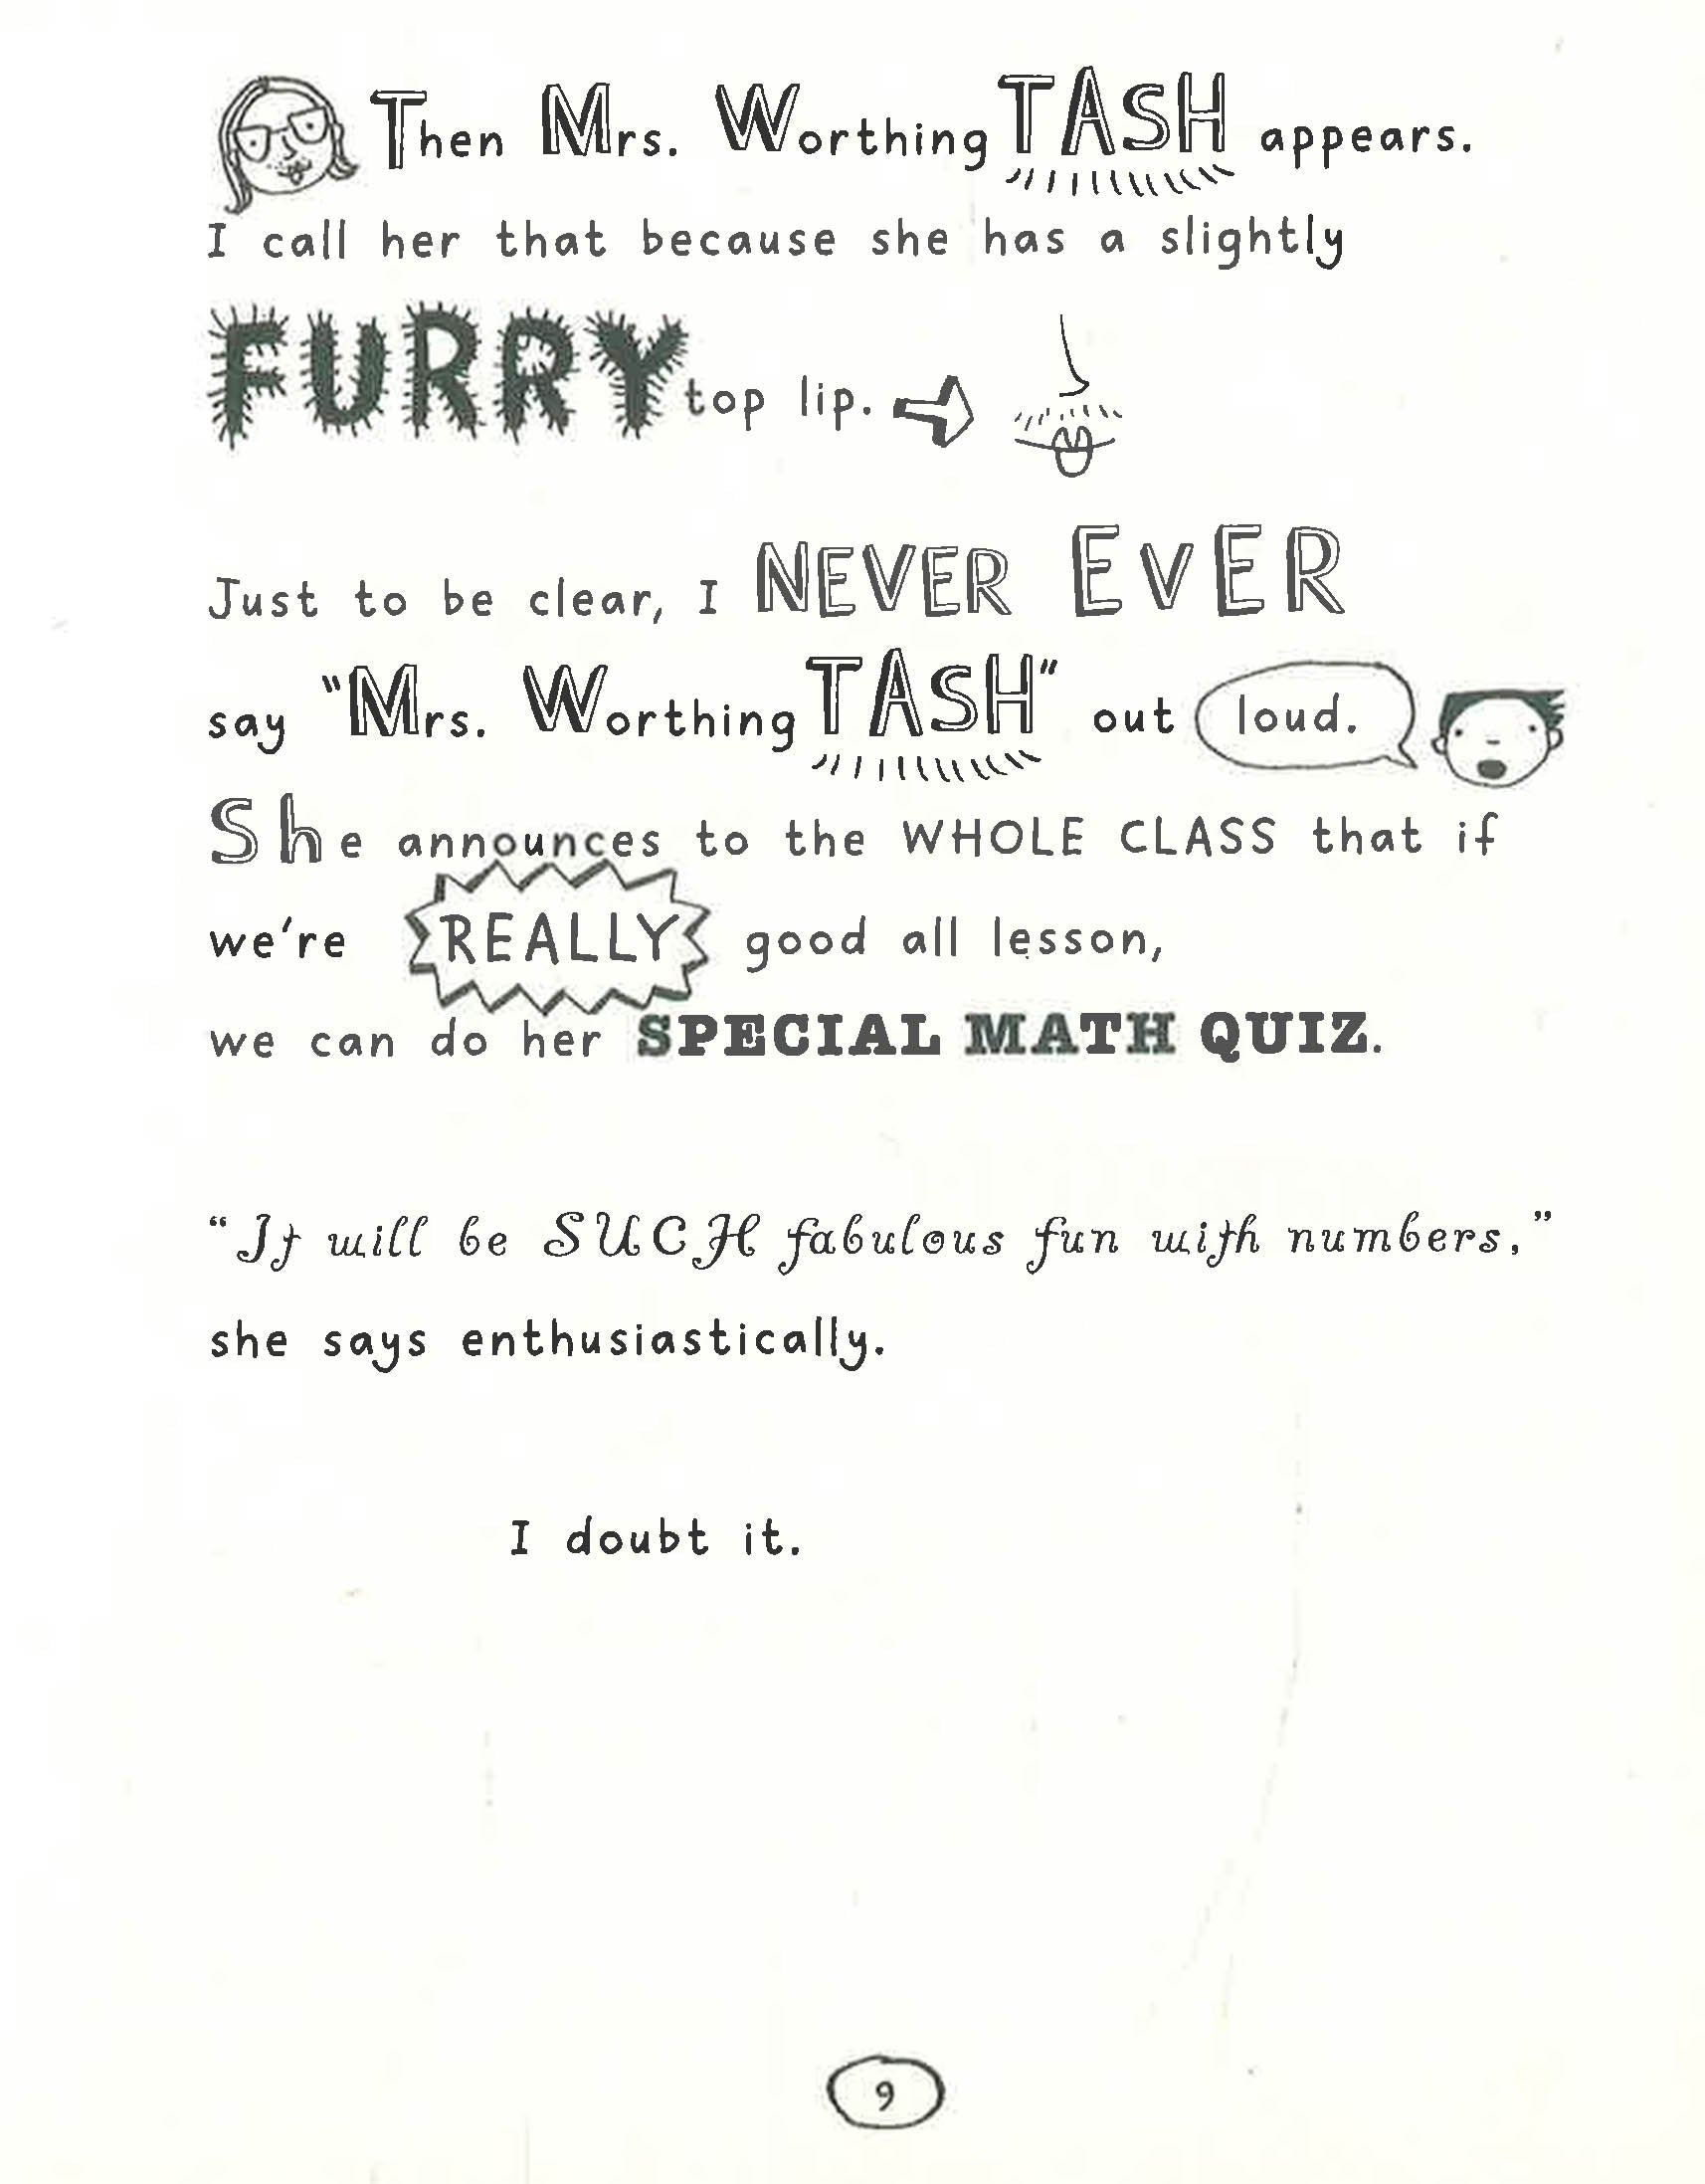 Then Mrs. WorthingTASH appears.
I call her that because she has a slightly
FURRY top lip.
Just to be clear, I NEVER EVER
say "Mrs. WorthingTASH" out loud.
She announces to the WHOLE CLASS that if
we're REALLY good all lesson,
we can do her SPECIAL MATH QUIZ.
“It will be SUCH fabulous fun with numbers,”
she says enthusiastically.
I doubt it.
9